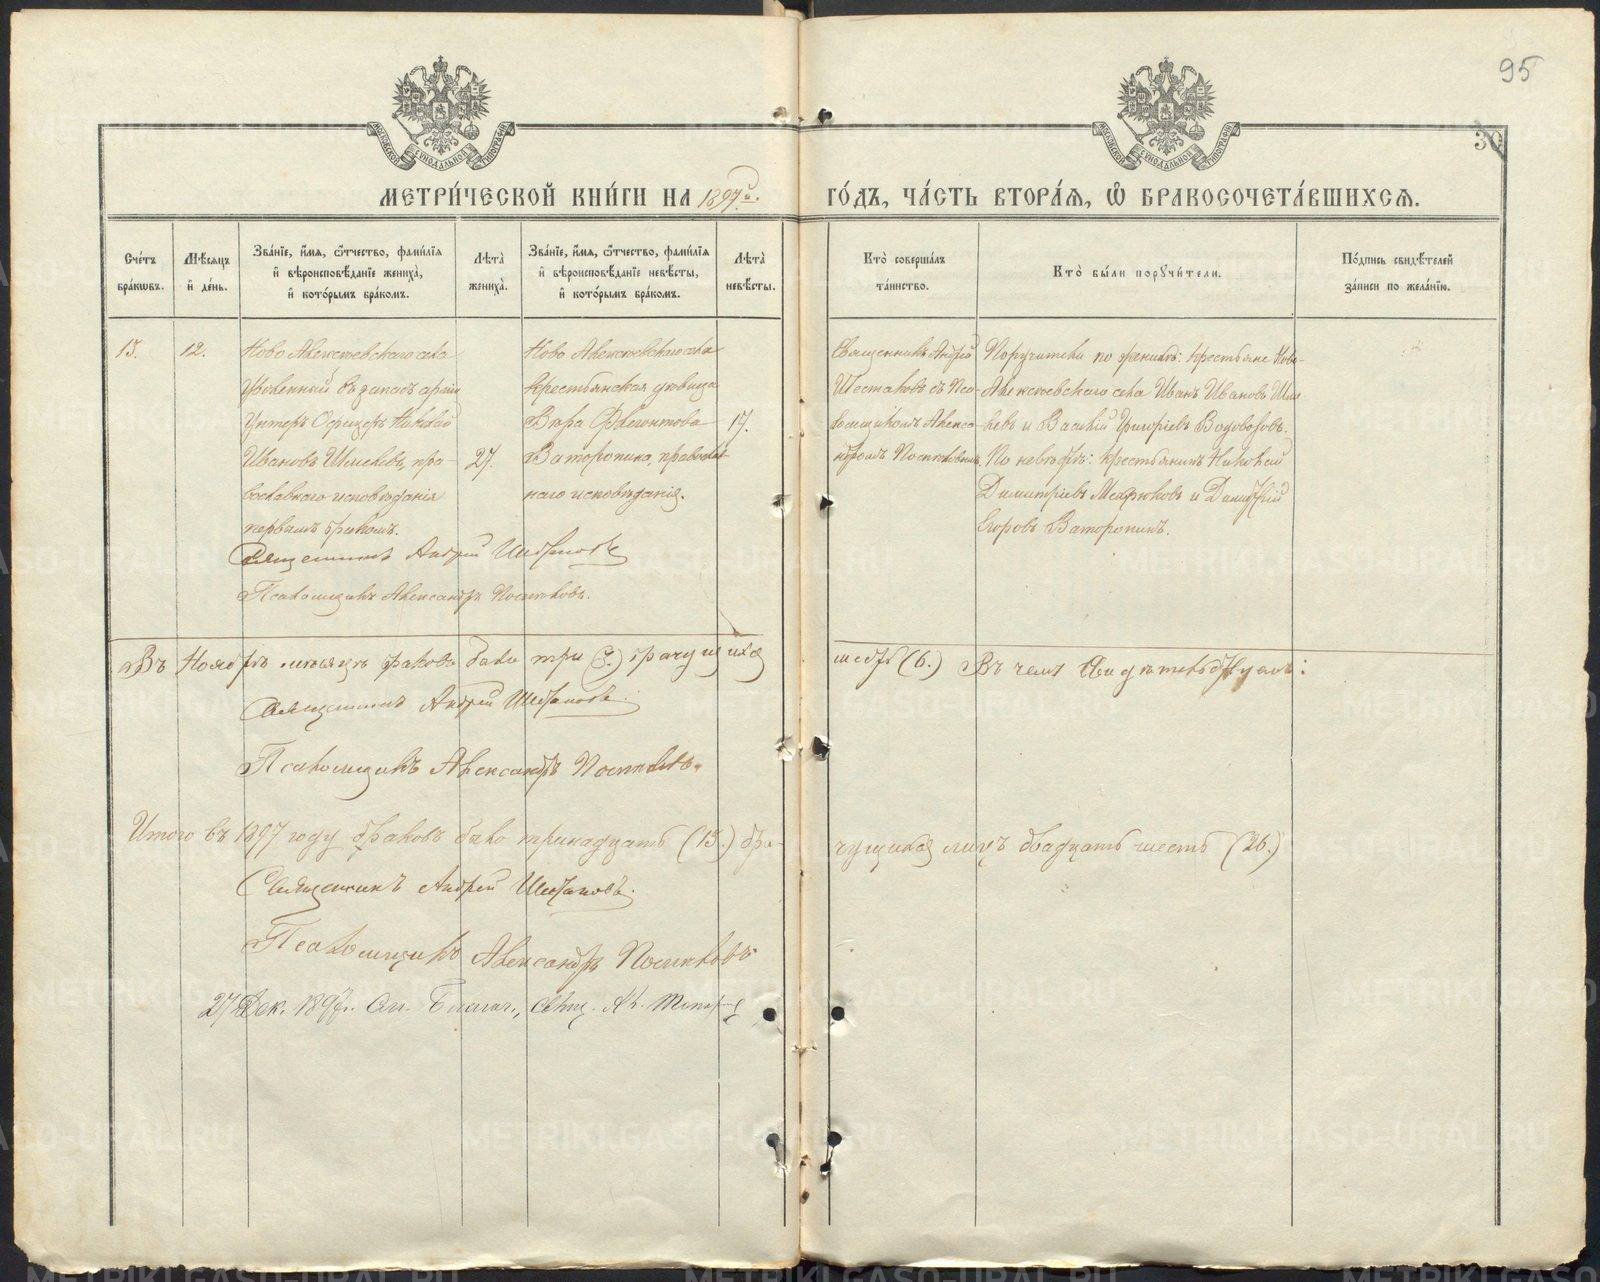 95
30
МОСКОВСКОЙ СѴНОДАЛЬНОЙ ТИПОГРАФІИ
МОСКОВСКОЙ СѴНОДАЛЬНОЙ ТИПОГРАФІИ
МЕТРИ́ЧЕСКОЙ КНИ́ГИ НА 1897й. ГО́ДЪ, ЧА́СТЬ ВТОРА́Ѧ, Ѡ҆ БРАКОСОЧЕТА́ВШИХСѦ.
Сче́тъ бра́кѡвъ.
Мѣ́сѧцъ и҆ де́нь.
Зва́нїе, и҆́мѧ, ѻ҆́тчество, фами́лїѧ и҆ вѣроисповѣ́данїе жениха̀, и҆ кото́рымъ бра́комъ.
Лѣ́та жениха̀.
Зва́нїе, и҆́мѧ, ѻ҆́тчество, фами́лїѧ и҆ вѣроисповѣ́данїе невѣ́сты, и҆ кото́рымъ бра́комъ.
Лѣ́та невѣ́сты.
Кто̀ соверша́лъ та́инство.
Кто̀ бы́ли порꙋчи́тели.
По́дпись свидѣ́телей за́писи по жела́нїю.
13.
12.
Ново Алексеевскаго села
Уволенный въ запасъ армiи
Унтеръ Офицеръ Николай
Ивановъ Шмелевъ, пра-
вославнаго исповѣданія
первымъ бракомъ.
27.
Ново Алексеевскаго села
крестьянская дѣвица
Вѣра Флегонтова
Ваторопина, православ-
наго исповѣданія.
17.
Священникъ Андрей
Шестаковъ съ Пса-
ломщикомъ Алекса-
ндромъ Постниковымъ
Поручители по женихѣ: крестьяне Ново-
Алексеевскаго села Иванъ Ивановъ Шме
левъ и Василій Григорьевъ Водовозовъ.
По невѣстѣ: крестьянинъ Николай
Димитріевъ и Димитрій
Егоровъ Ваторопинъ.
Священникъ Андрей Шестаковъ
Псаломщикъ Александръ Постниковъ.
Въ Ноябрѣ мѣсяцѣ браковъ было три (3.) брачущихся шесть (6.) Въ чемъ свидѣтельствуемъ:
Священникъ Андрей Шестаковъ.
Псаломщикъ Александръ Постниковъ.
Итого въ 1897 году браковъ было тринадцать (13.) бра-чущихся лицъ двадцать шесть (26.)
Священникъ Андрей Шестаковъ.
Псаломщикъ Александръ Постниковъ
27 Дек. 1897 г. См. Благоч., Свящ. Ал.
METRIKI.GASO-URAL.RU